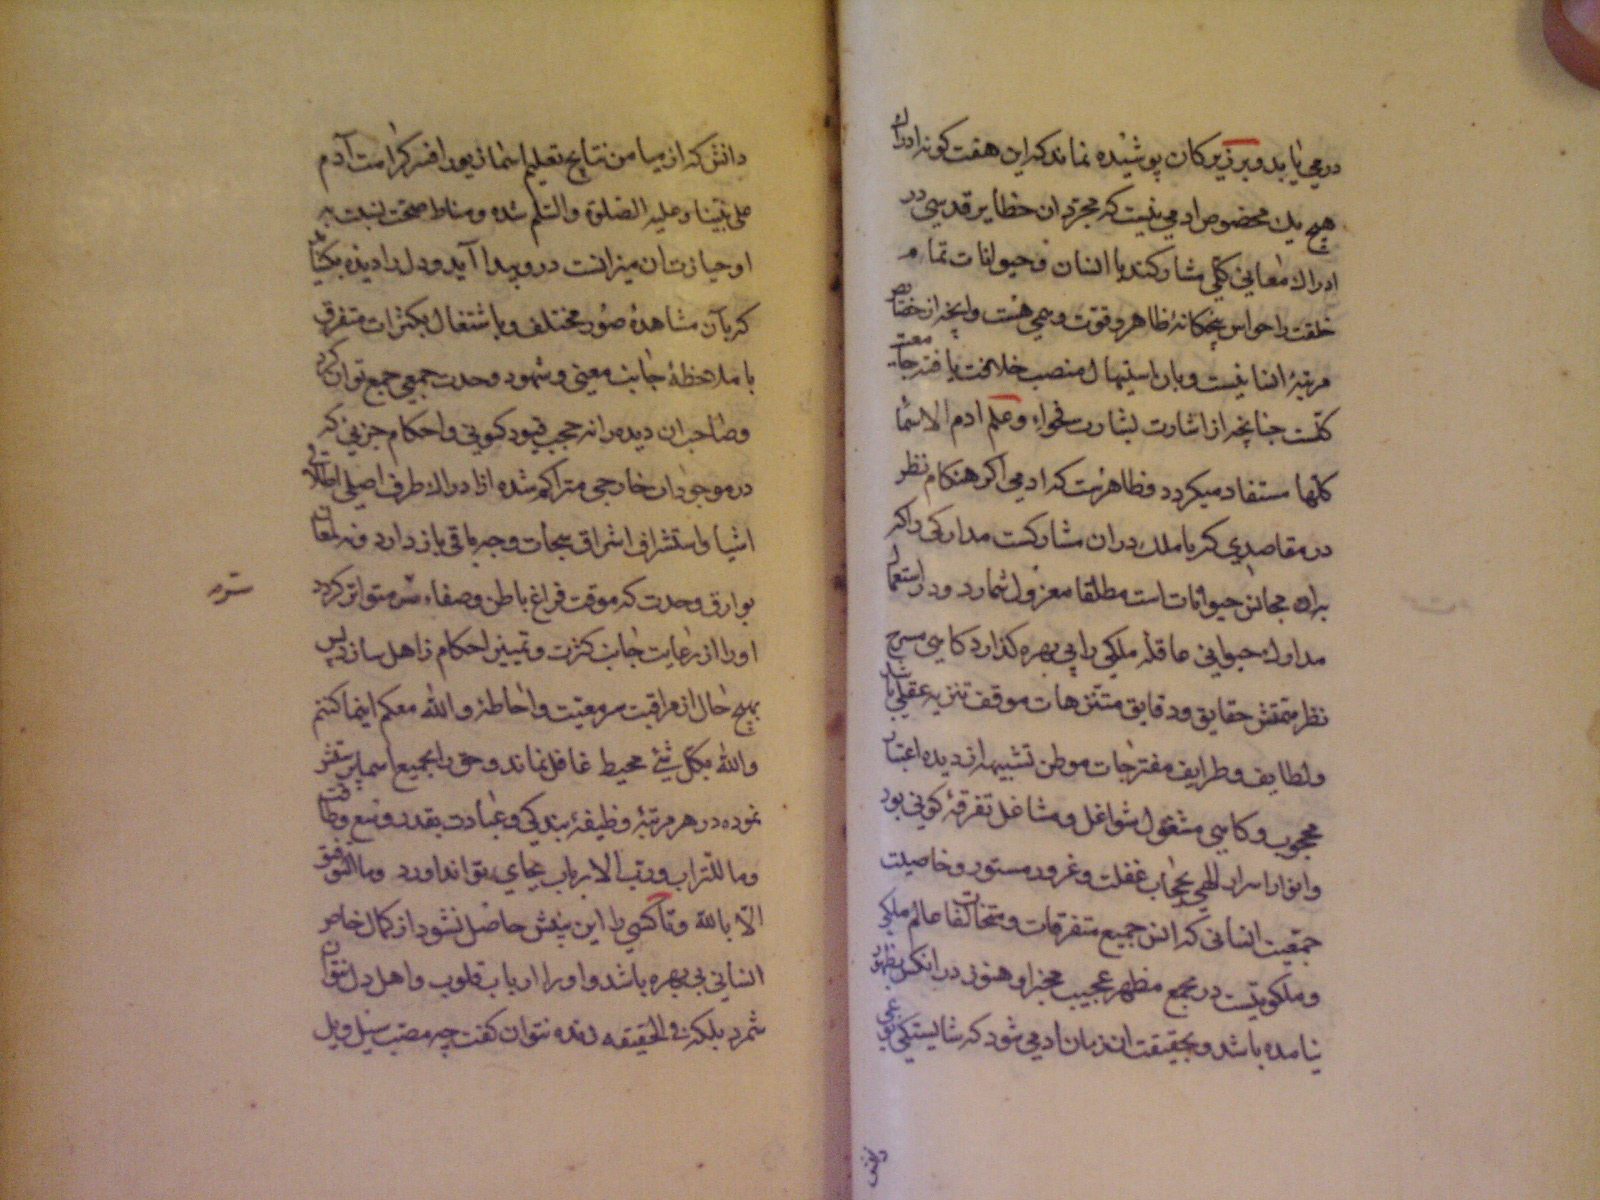 در می یابد و بر زیرکان پوشیده نماند که این هفت کونه ادراک
هیچ یک مخصوص ادمی نیست که مجردان حظایر قدسی در
ادراک معانی کلی مشارکند با انسان و حیوانات تمام
خلقت را حواس پنجکانهٔ ظاهر و قوت وهمی هست و انچه از خصایص
مرتبهٔ انسانیست و بان استیهال منصب خلافت یافته جامعیت
کلست چنانچه از اشارت بشارت فحواء و علم ادم الاسما
کلها مستفاد میکردد و ظاهرست که ادمی اکر هنکام نظر
در مقاصدی که با ملک دران مشارکست مدارکی را که
بدان مجانس حیوانات است مطلقا معزول شمارد و در استعمال
مدارک حیوانی عاقلهٔ ملکی را بی بهره کذارد کاهی مسرح
نظر متمعنش حقایق و دقایق متنزهات موقف تنزیه عقلی باشد
و لطایف و طرایف مفترجات موطن تشبیه از دیده اعتبار
محجوب و کاهی مشغول شواغل و مشاغل تفرقهٔ کونی بود
و انوار اسرار الهی بحجاب غفلت و غرور مستور و خاصیت
جمعیت انسانی که انس جمیع متفرقات و متخالفات عالم ملکی
و ملکوتیست در مجمع مظهر عجیب معجز او هنوز در انکس بظهور
نیامده باشد و بحقیقت ان زمان ادمی شود که شایستکی نوعی
دانش
دانش که از میامن نتایج تعلیم اسمانیون افسر کرامت آدم
علی نبینا و علیه الصلوة والسلم شده و مناط صحت نسبت به
او حیازت ان میزانست درو پیدا آید و دل را دیده یکتا
که بآن مشاهدهٔ صور مختلف و باشتغال بکثرات متفرق
با ملاحظهٔ جانب معنی و شهود وحدت جمعی جمع توان کرد
و صاحب ان دیده را نه حجب قیود کونی و احکام جزیی که
در موجودات خارجی متراکم شده از ادراک طرف اصلی اطلاقی
اشیا و استشراف اشراق سبحات وجه باقی باز دارد و نه لمعان
بوارق وحدت که موقت فراغ باطن و صفاء سر متواتر کردد
او را از رعایت جانب کثرت و تمییز احکام ذاهل سازد پس
بهیچ حال از مراقبت سر معیت و احاطهٔ والله معکم اینما کنتم
والله بکل شیء محیط غافل نماند و حق را بجمیع اسما پرستش
نموده در هر مرتبهٔ وظیفهٔ بندکی و عبادت بقدر وسع و طاقت
و ما للتراب و رب الارباب بجای تواند اورد و ما التوفیق
الا بالله و تا کسی را این بینش حاصل نشود از کمال خاص
انسانی بی بهره باشد و او را ارباب قلوب و اهل دل نتوان
شمرد بلکه فی الحقیقه زنده نتوان کفت چه مصب سیل و بل